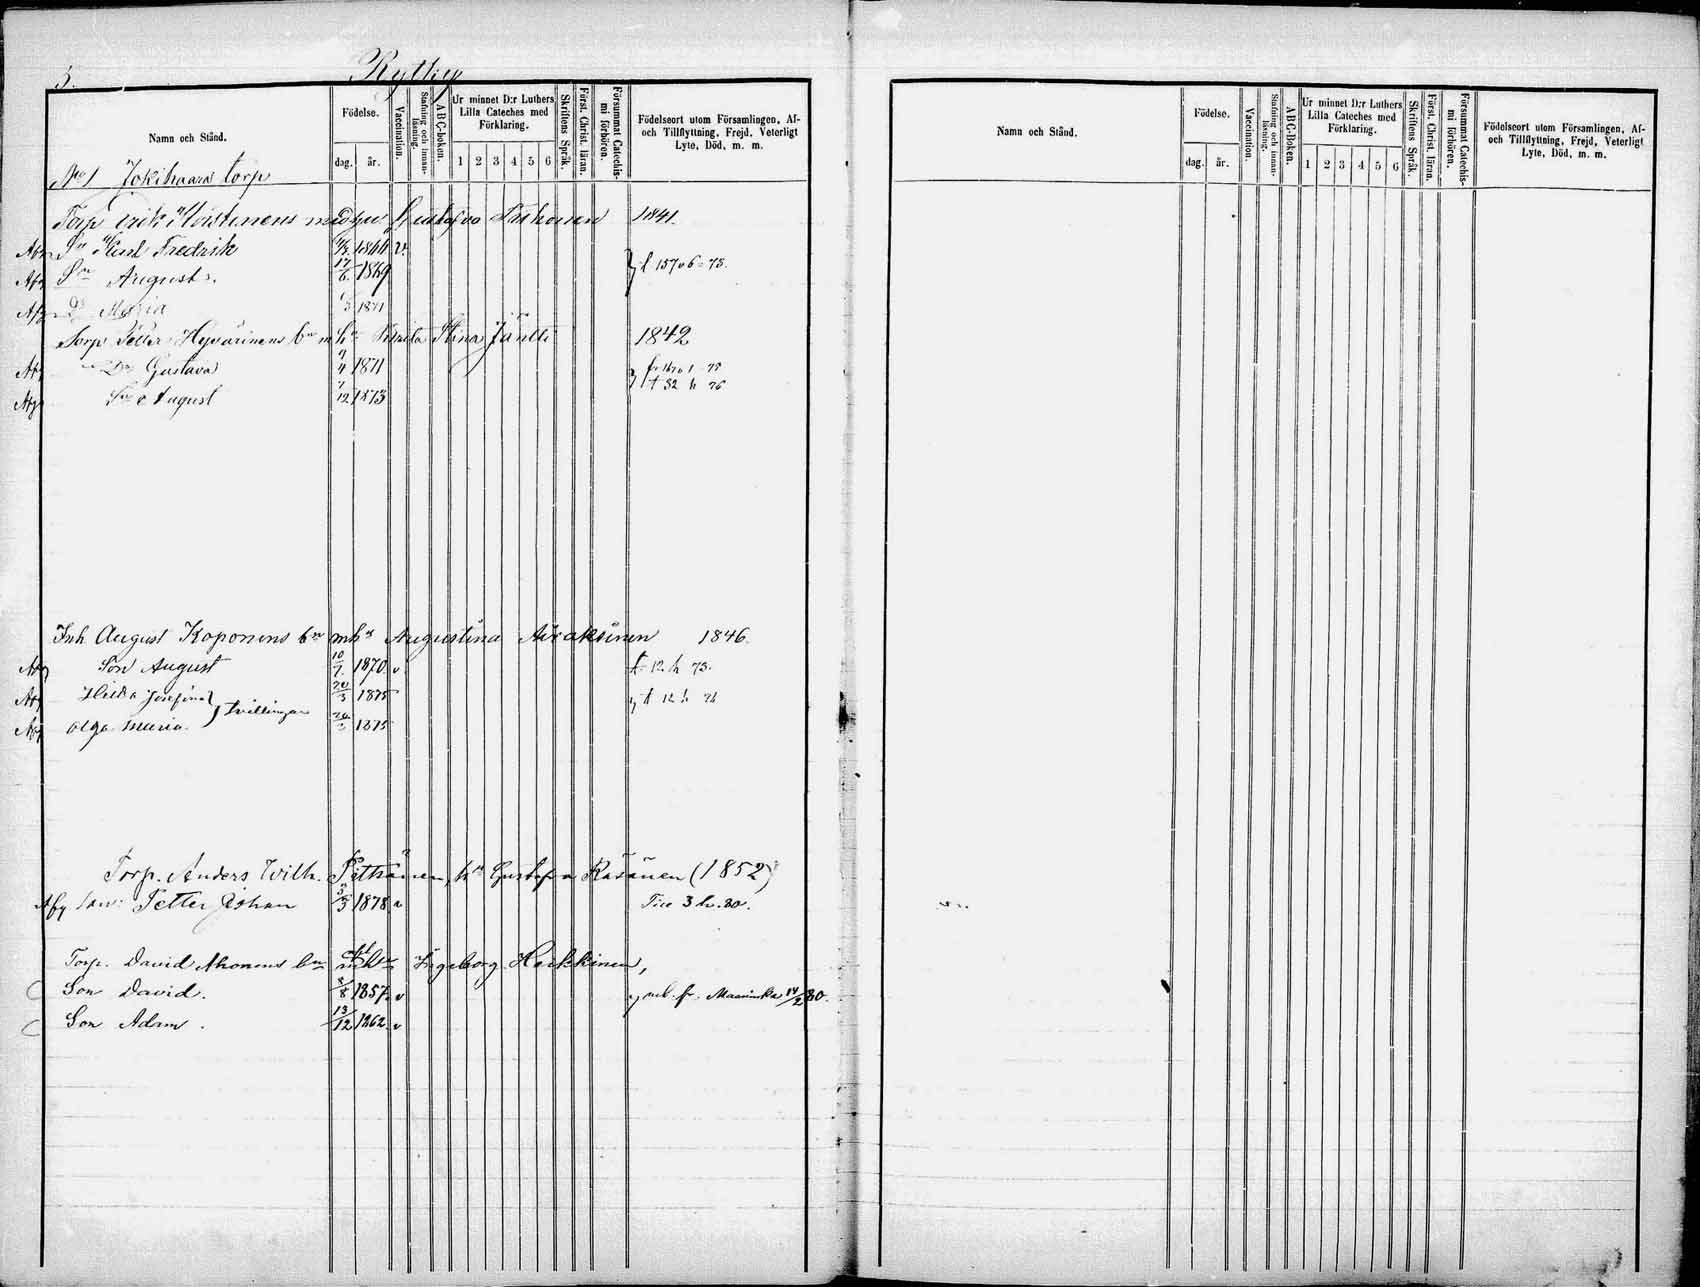 3. Rytky
Namn och Stånd.
Födelse.
dag. år.
Vaccination.
Stafning och innanläsning.
ABC-boken.
Ur minnet D:r Luthers Lilla Cateches med Förklaring.
1 2 3 4 5 6
Skriftens Språk.
Först. Christ. läran.
Försummat Catechismi förhören.
Födelseort utom Församlingen, Af- och Tillflyttning, Frejd, Veterligt Lyte, Död, m. m.
No 1 Jokihaara torp
Torp Erik Gustafva 1841.
Karl Fredrik 1866 v.
Afg Sn August. 17/6 1869
Afg Dr Maria 1871
Torp Peter Hyvärinens bn m hu Stina Jäntti 1842
Afg Dr Gustava 1871
Afg Sn August 7/12 1873
Inh August Koponens bn m hu Augustina Airaksinen 1846.
Afg Son August 10/7 1870 v 12 h 73.
Afg Hilda Josefina } tvillingar 20/3 1875 12 h 76
Afg Olga Maria. 20/3 1875
Torp. Anders Wilh. Pitkänen, hu Gustafva Räsänen (1852)
Afg Son: Petter Johan 1878 v 3 h. 80.
Torp. David Ahonens bn m hu Ingeborg Heikkinen,
Son David. 2/8 1857. v fr. Maaninka 14/2 80.
Son Adam. 13/12 1862 v
Namn och Stånd.
Födelse.
dag. år.
Vaccination.
Stafning och innanläsning.
ABC-Boken.
Ur minnet D:r Luthers Lilla Cateches med Förklaring.
1 2 3 4 5 6
Skriftens Språk.
Först. Christ. läran.
Försummat Catechismi förhören.
Födelseort utom Församlingen, Af- och Tillflyttning, Frejd, Veterligt Lyte, Död, m. m.